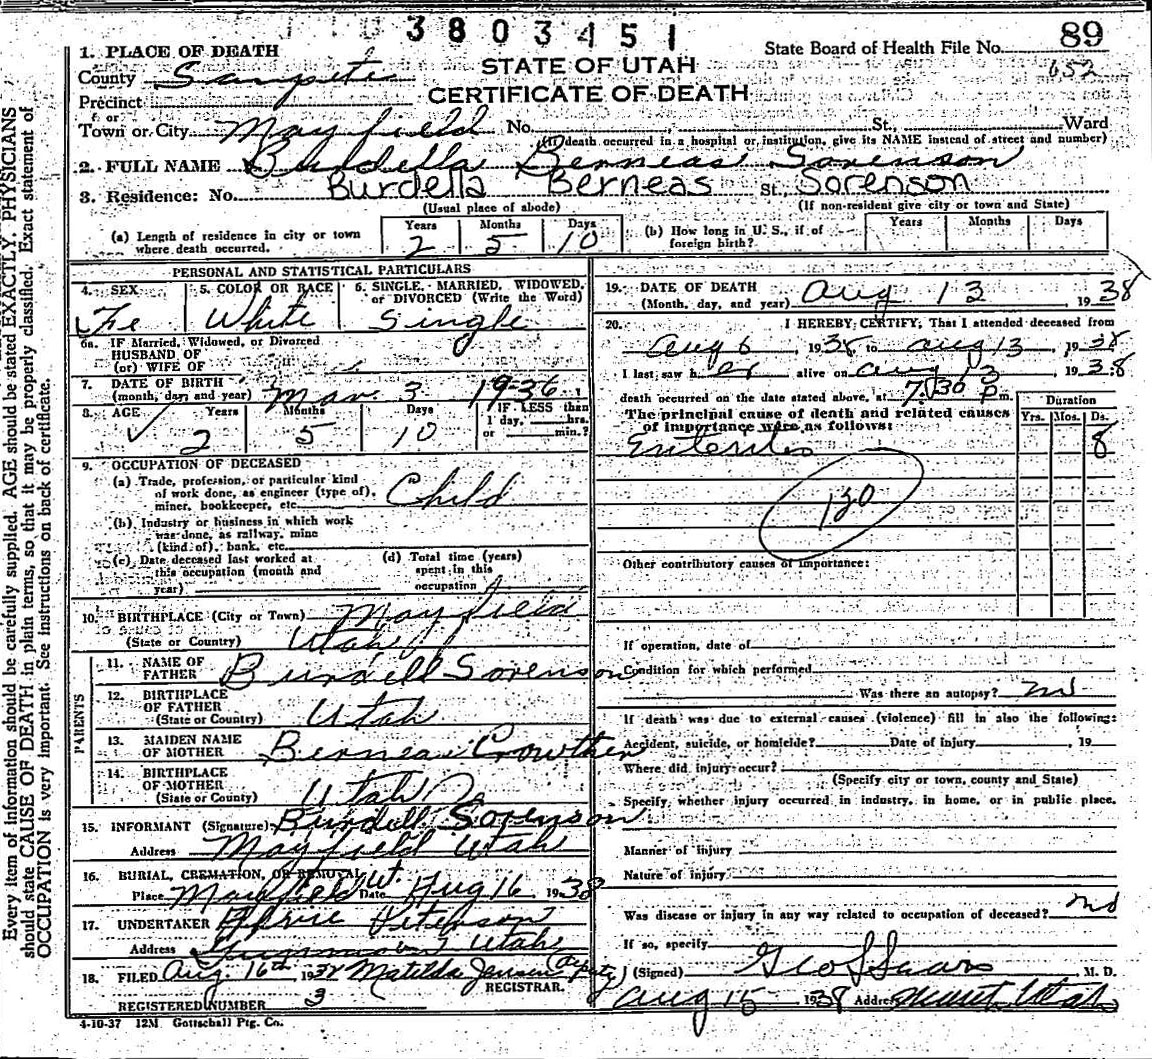 3803451
State Board of Health File No. 89
652
STATE OF UTAH
CERTIFICATE OF DEATH
1. PLACE OF DEATH
County Sanpete
Precinct
or
Town or City Mayfield No. , St., Ward
(If death occurred in a hospital or institution, give its NAME instead of street and number)
2. FULL NAME Burdella Berneas Sorenson
3. Residence: No. Burdella Berneas St. Sorenson
(Usual place of abode) (If non-resident give city or town and State)
(a) Length of residence in city or town where death occurred. Years 2 Months 5 Days 10
(b) How long in U. S., if of foreign birth? Years Months Days
PERSONAL AND STATISTICAL PARTICULARS
4. SEX Fe
5. COLOR OR RACE White
6. SINGLE, MARRIED, WIDOWED, or DIVORCED (Write the Word) Single
6a. IF Married, Widowed, or Divorced
HUSBAND OF
(or) WIFE OF
7. DATE OF BIRTH
(month, day, and year) Mar. 3 1936
8. AGE Years 2 Months 5 Days 10 IF LESS than 1 day, hrs. or min.?
9. OCCUPATION OF DECEASED
(a) Trade, profession, or particular kind
of work done, as engineer (type of),
miner, bookkeeper, etc. Child
(b) Industry or business in which work
was done, as railway, mine
(kind of), bank, etc.
(c) Date deceased last worked at
this occupation (month and
year)
(d) Total time (years)
spent in this
occupation
10. BIRTHPLACE (City or Town) Mayfield
(State or Country) Utah
PARENTS
11. NAME OF FATHER Burdell Sorenson
12. BIRTHPLACE OF FATHER
(State or Country) Utah
13. MAIDEN NAME OF MOTHER Berneas Crowther
14. BIRTHPLACE OF MOTHER
(State or County) Utah
15. INFORMANT (Signature) Burdell Sorenson
Address Mayfield Utah
16. BURIAL, CREMATION, OR REMOVAL
Place Mayfield Ut. Date Aug 16 1938
17. UNDERTAKER Peterson
Address Gunnison Utah
18. FILED Aug. 16th, 1938 Matilda Jensen (Deputy)
REGISTRAR.
REGISTERED NUMBER 3
4-10-37 12M Gottschall Ptg. Co.
19. DATE OF DEATH
(Month, day, and year) Aug 13 1938
20. I HEREBY CERTIFY, That I attended deceased from
Aug 6, 1938, to Aug 13, 1938
I last saw her alive on Aug 13 1938
death occurred on the date stated above, at 7:30 P.m.
The principal cause of death and related causes
of importance were as follows:
Duration
Yrs. Mos. Ds.
Enteritis 8
120
Other contributory causes of importance:
If operation, date of
Condition for which performed
Was there an autopsy? no
If death was due to external causes (violence) fill in also the following:
Accident, suicide, or homicide? Date of injury , 19
Where did injury occur?
(Specify city or town, county and State)
Specify whether injury occurred in industry, in home, or in public place.
Manner of injury
Nature of injury
Was disease or injury in any way related to occupation of deceased? no
If so, specify
(Signed) Geo L Sears M. D.
Aug 15 1938 Address Utah
Every item of information should be carefully supplied. AGE should be stated EXACTLY. PHYSICIANS
should state CAUSE OF DEATH in plain terms, so that it may be properly classified. Exact statement of
OCCUPATION is very important. See instructions on back of certificate.